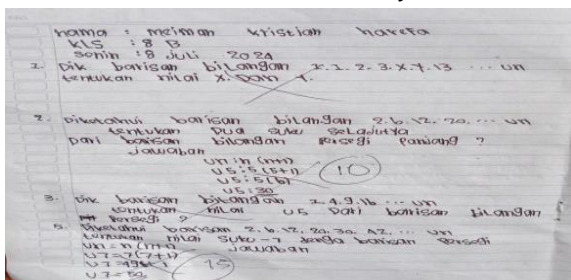 nama : meiman kristian harefa
KLS : 8 B
senin : 8 Juli 2024
1. Dik barisan bilangan 1. 1. 2. 3. X. Y. 13 ... un
tentukan nilai X. Dan Y.
2. Diketahui barisan bilangan 2. 6. 12. 20. ... un
tentukan Dua suku seladutya
Dari barisan bilangan Persegi Panjang ?
Jawaban
un : n (n+1)
U5 : 5 (5+1)
U5 : 5 (6)
U5 : 30
10
3. Dik barisan bilangan 1. 4. 9. 16. ... un
tentukan nilai U5 Dari barisan bilangan
Persegi ?
5. Diketahui barisan 2. 6. 12. 20. 30. 42. ... un
tentukan nilai suku-7 barisan Persegi
un = n (n+1) Jawaban
U7 = 7 (7+1)
U7
15